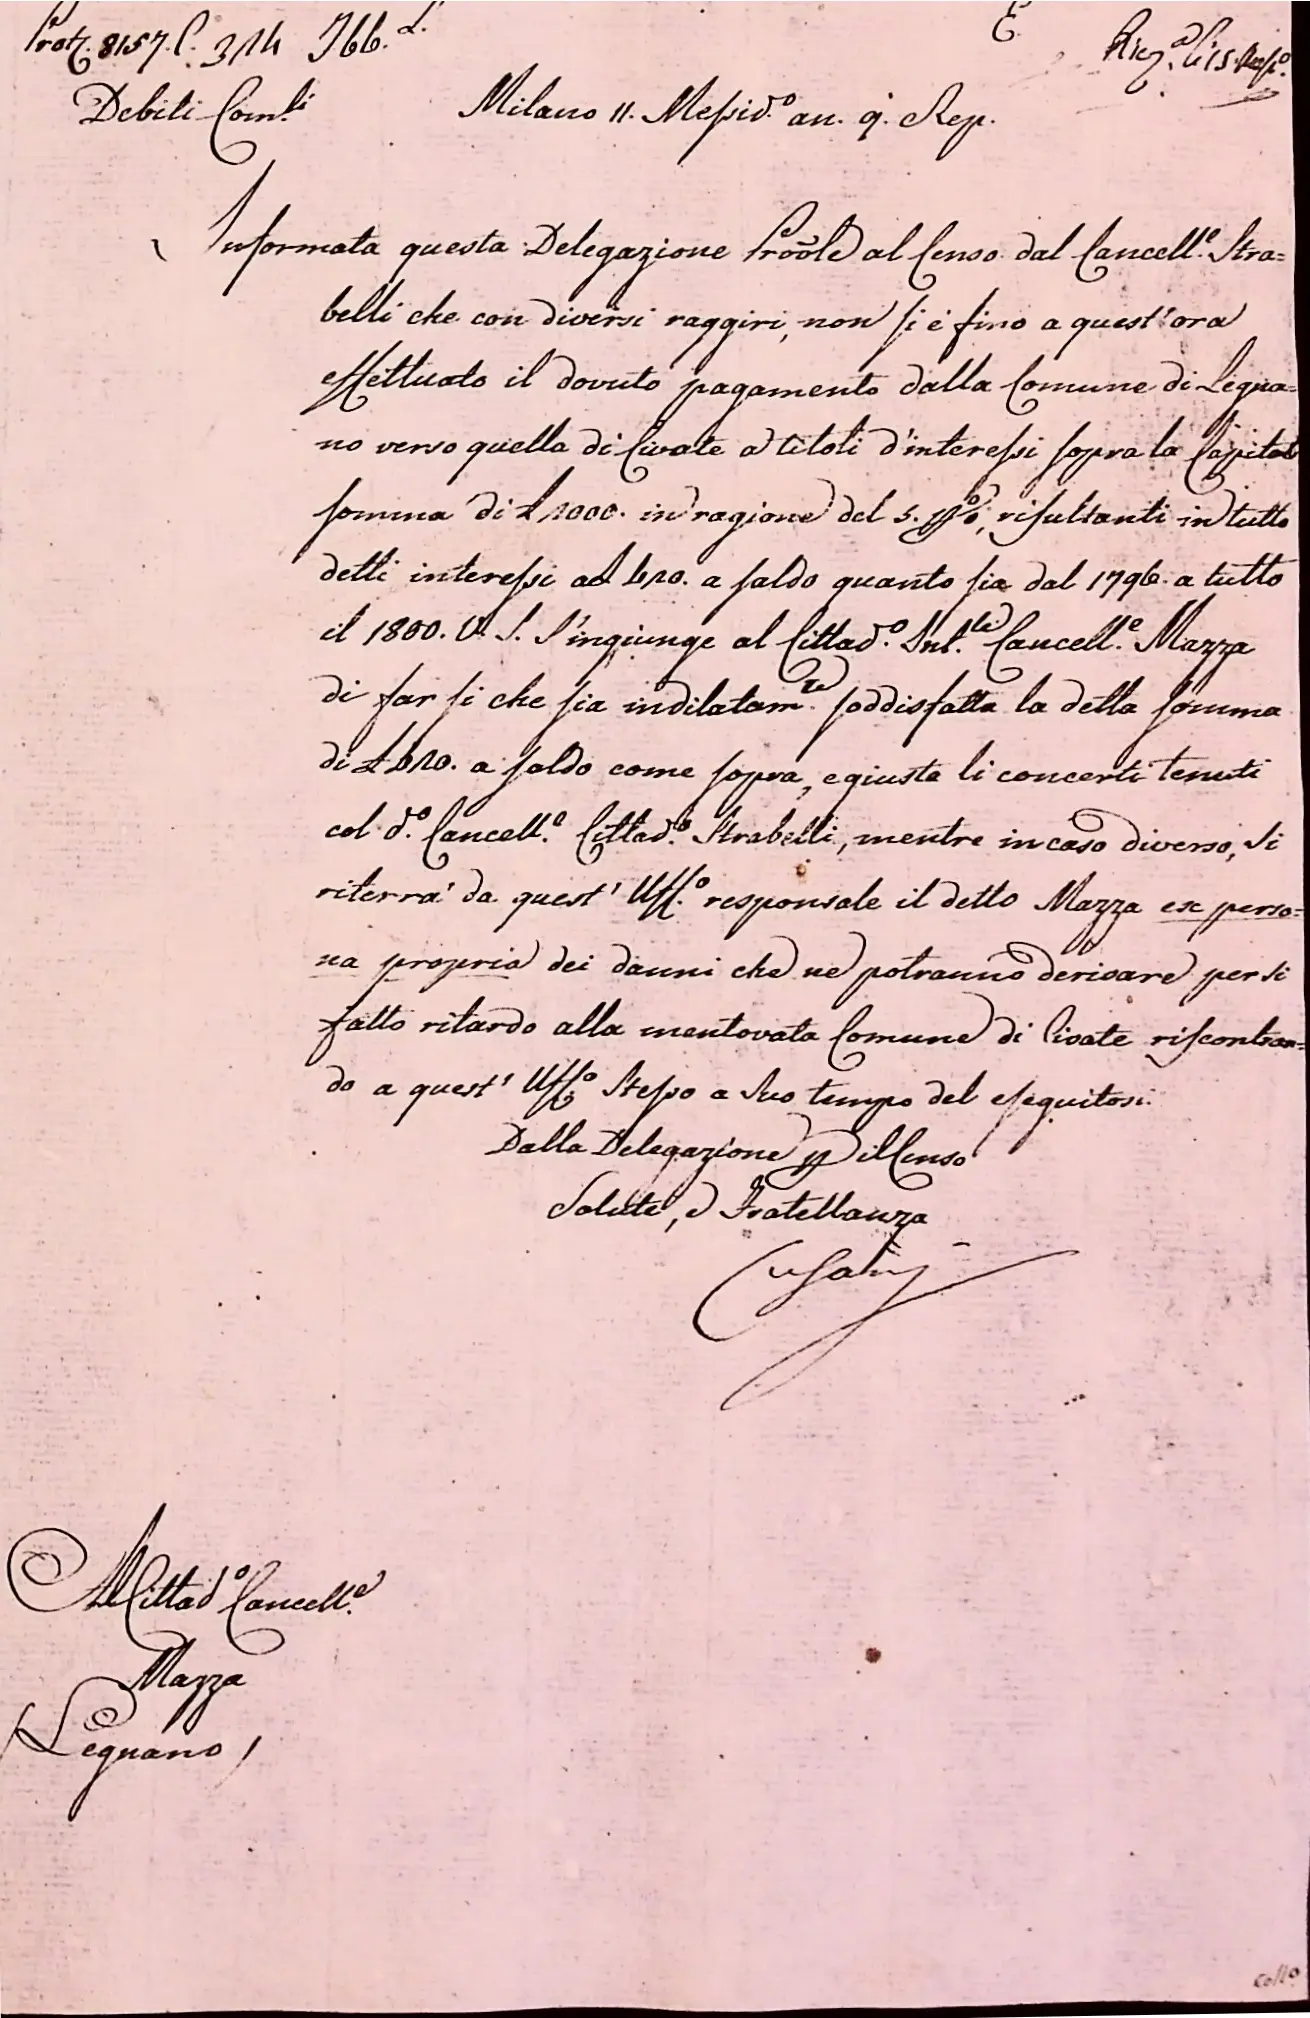 Prot. 8157. C. 314 Ibb. L.
E.
Ricz.a li 15. Mess.o
Debiti Com.li
Milano 11. Messid.o an. 9. Rep.
Informata questa Delegazione Provle al Censo dal Cancell.e Stra=
belli che con diversi raggiri, non si è fino a quest'ora
effettuato il dovuto pagamento dalla Comune di Legna=
no verso quella di Civate a titoli d'interessi sopra la Capital
somma di L 1000. in ragione del 5. p%, risultanti in tutto
detti interessi ad L 620. a saldo quanto sia dal 1796. a tutto
il 1800. V. S. S'ingiunge al Cittad.o Int.te Cancell.e Mazza
di far si che sia indilatam.te soddisfatta la detta somma
di L 620. a saldo come sopra, e giusta li concerti tenuti
col d.o Cancell.e Cittad.o Strabelli, mentre in caso diverso, Si
riterrà da quest' Uff.o responsale il detto Mazza ex perso=
na propria dei danni che ne potranno derivare per si
fatto ritardo alla mentovata Comune di Civate riscontran=
do a quest' Uff.o Stesso a Suo tempo del eseguitosi.
Dalla Delegazione p il Censo
Salute, e Fratellanza
Cusani
Al Cittad.o Cancell.e
Mazza
Legnano
Collo